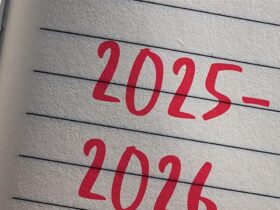 2025-
2026